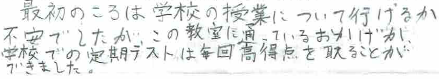 最初のころは学校の授業について行けるか
不安でしたが、この教室に通っているおかげか、
学校での定期テストは毎回高得点を取ることが
できました。